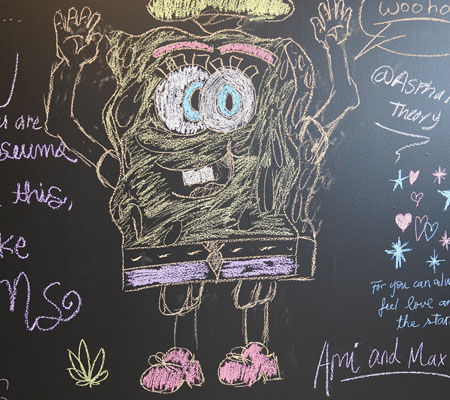 wooho
@Aspha
Theory
u are
this,
ke
For you can alw
feel love an
the star
April and Max